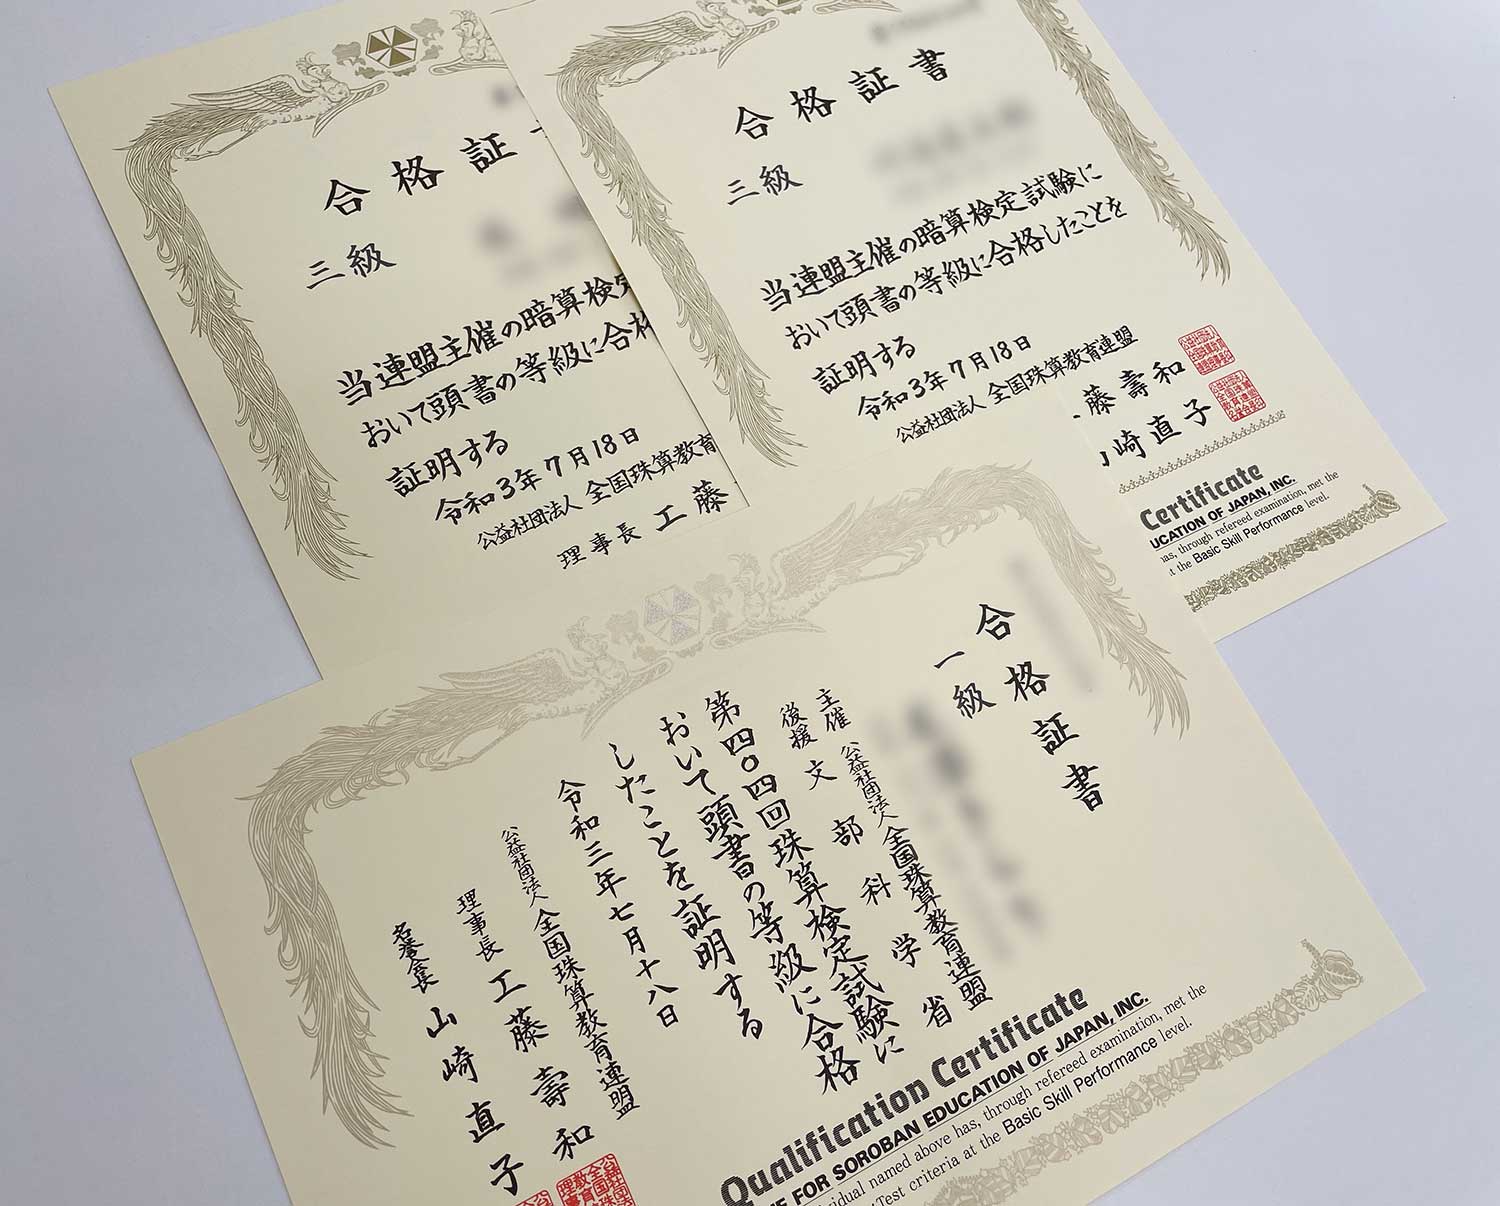 合格証
三級
当連盟主催の暗算検定
おいて頭書の等級に合格
証明する
令和3年7月18日
公益社団法人 全国珠算教育
理事長 工藤
合格証書
三級
当連盟主催の暗算検定試験に
おいて頭書の等級に合格したことを
証明する
令和3年7月18日
公益社団法人 全国珠算教育連盟
藤壽和
崎直子
Certificate
UCATION OF JAPAN, INC.
has, through refereed examination, met the
t the Basic Skill Performance level.
合格証書
一級
主催 公益社団法人 全国珠算教育連盟
後援 文部科学省
第四〇四回珠算検定試験に
おいて頭書の等級に合格
したことを証明する
令和三年七月十八日
公益社団法人 全国珠算教育連盟
理事長 工藤壽和
名誉会長 山崎直子
Qualification Certificate
FOR SOROBAN EDUCATION OF JAPAN, INC.
vidual named above has, through refereed examination, met the
Test criteria at the Basic Skill Performance level.